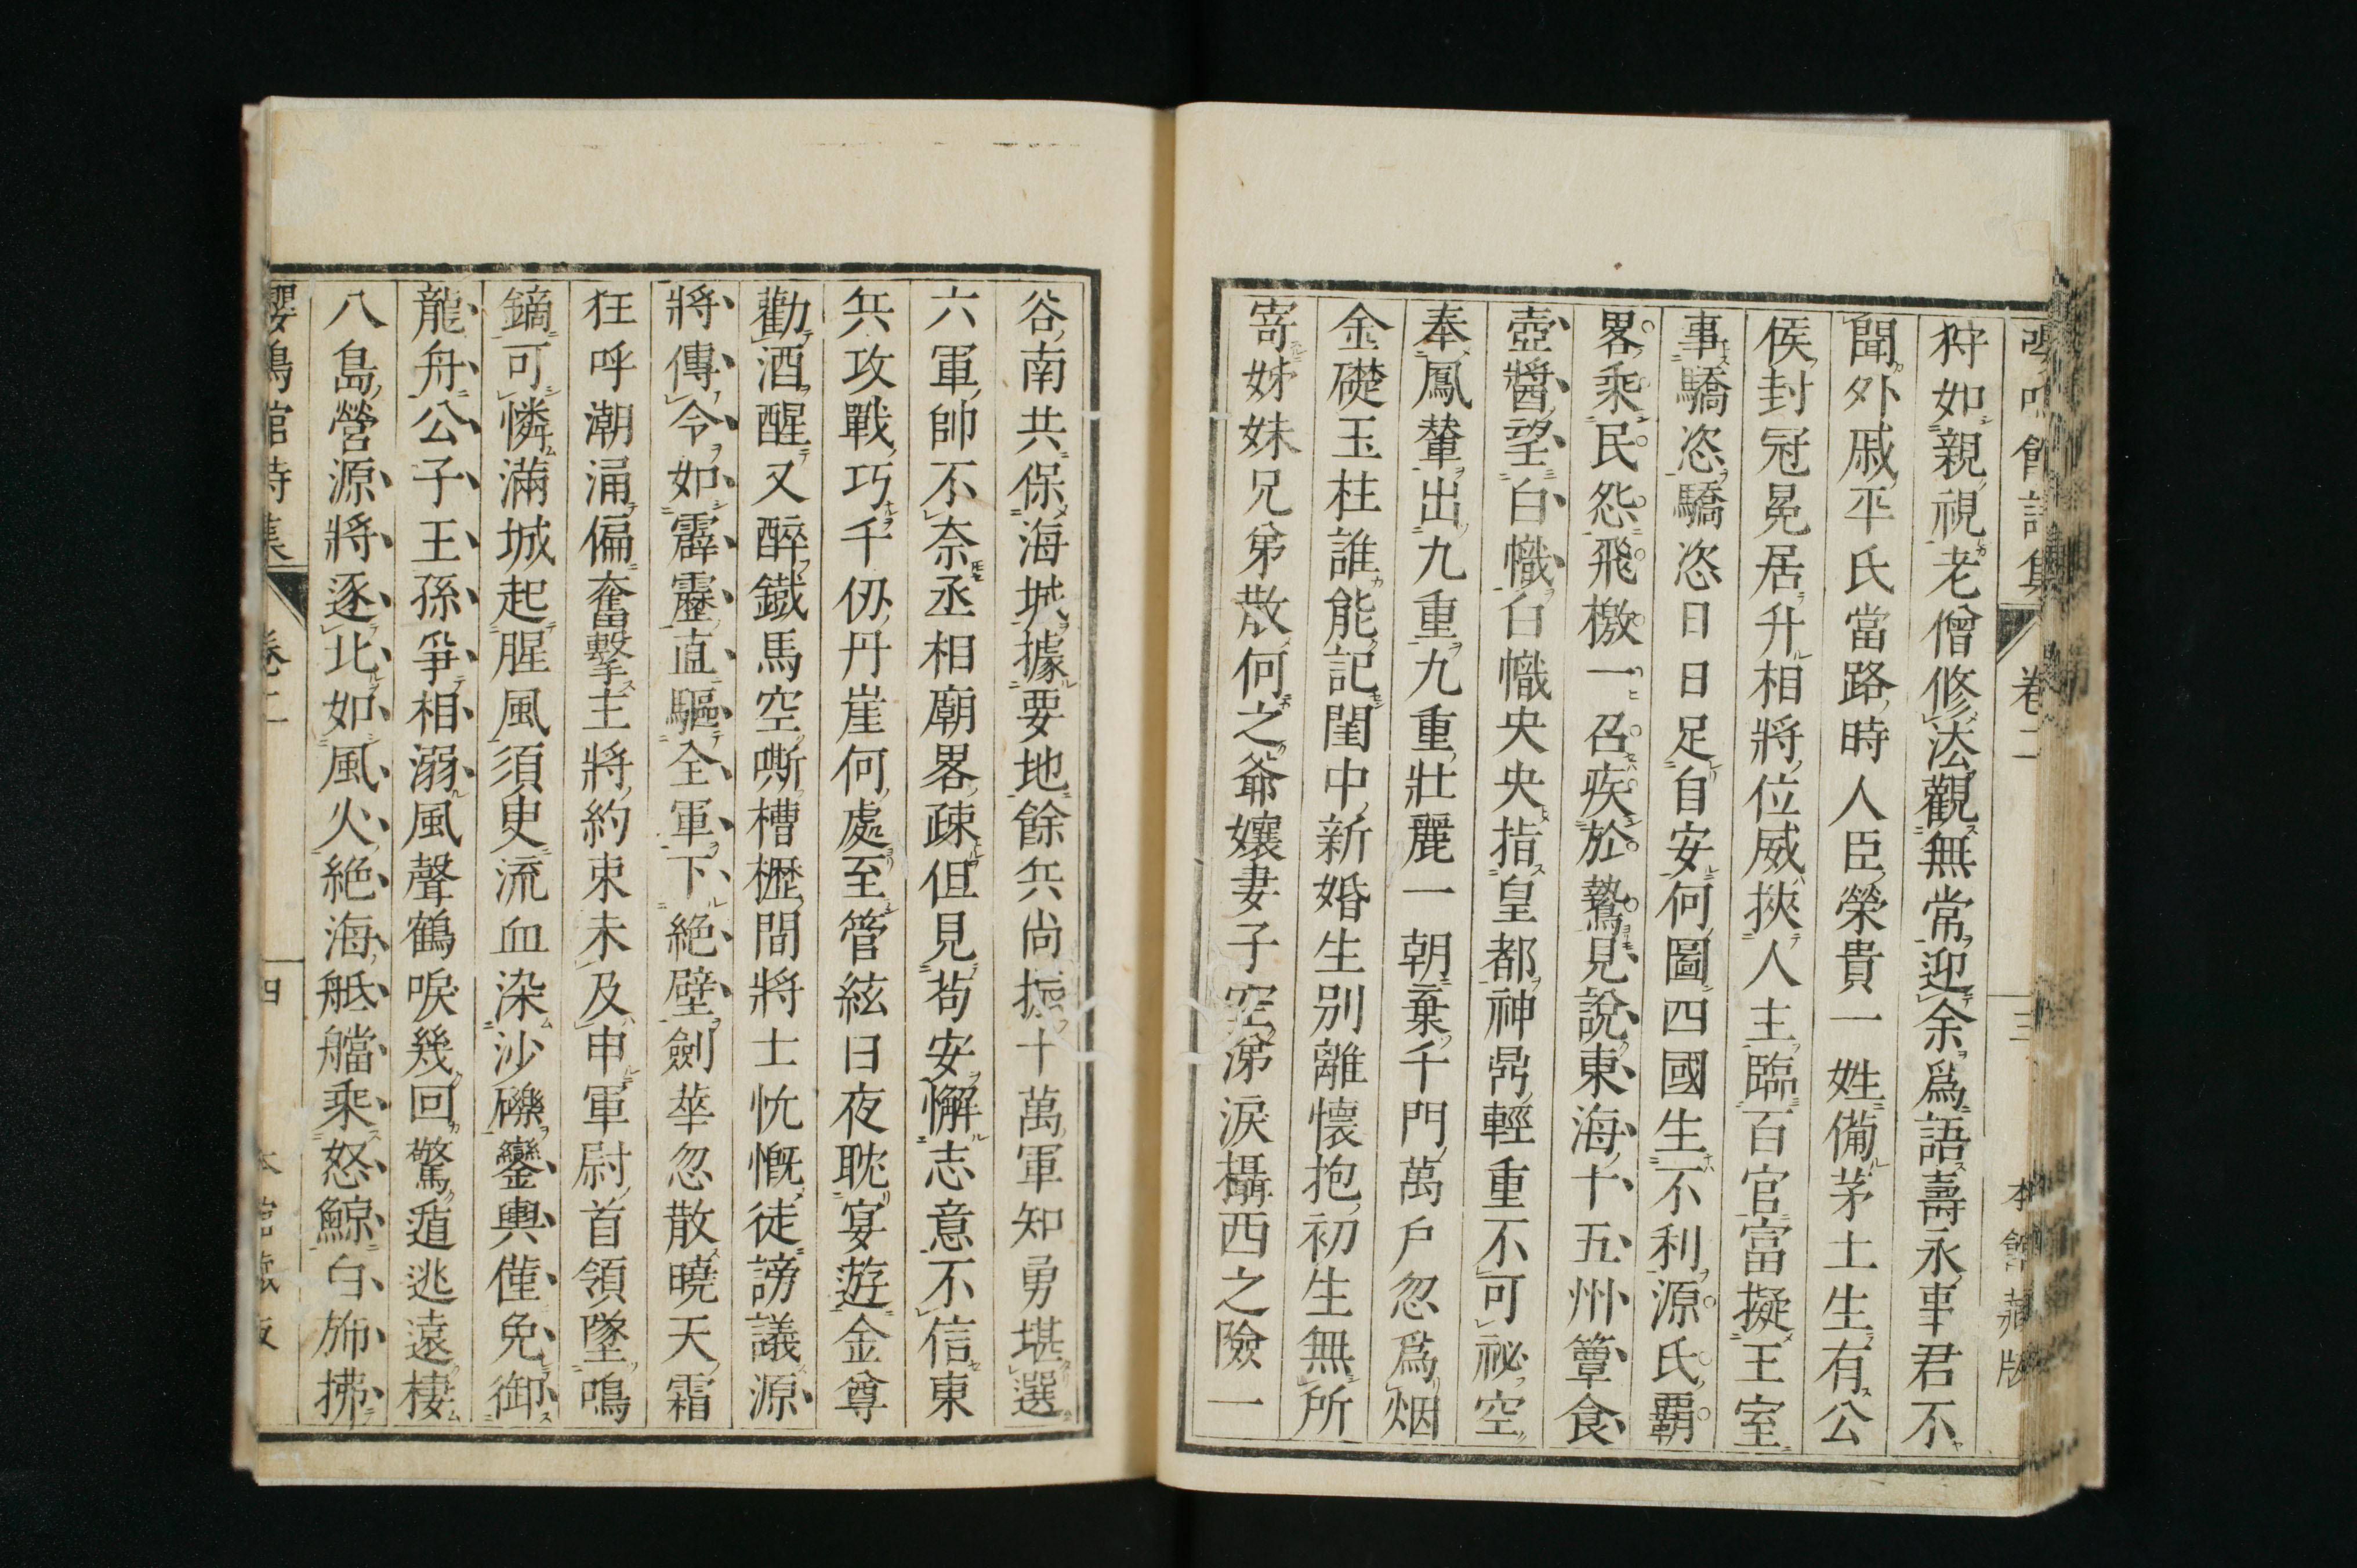 嚶鳴館詩集 卷二 三 本館藏版
狩如親視老僧修法觀無常迎余爲語壽永事君不
聞外戚平氏當路時人臣榮貴一姓備茅土生有公
侯封冠冕居升相將位威挾人主臨百官富擬王室
事驕恣驕恣日日足自安何圖四國生不利源氏覇
畧乘民怨飛檄一召疾於鷙見說東海十五州簞食
壺醬望白幟白幟央央指皇都神鼎輕重不可祕空
奉鳳輦出九重九重壯麗一朝棄千門萬戶忽爲烟
金礎玉柱誰能記閨中新婚生別離懷抱初生無所
寄姊妹兄弟散何之爺孃妻子空涕淚攝西之險一
谷南共保海城據要地餘兵尚振十萬軍知勇堪選
六軍帥不奈丞相廟畧疎但見苟安懈志意不信東
兵攻戰巧千仭丹崖何處至管絃日夜耽宴遊金尊
勸酒醒又醉鐵馬空嘶槽櫪間將士忼慨徒謗議源
將傳令如霹靂直驅全軍下絕壁劍華忽散曉天霜
狂呼潮涌偏奮擊主將約束未及申軍尉首領墜鳴
鏑可憐滿城起腥風須臾流血染沙礫鑾輿僅免御
龍舟公子王孫爭相溺風聲鶴唳幾回驚遁逃遠棲
八島營源將逐北如風火絕海艨艟乘怒鯨白旆拂
嚶鳴館詩集 卷二 四 本館藏版